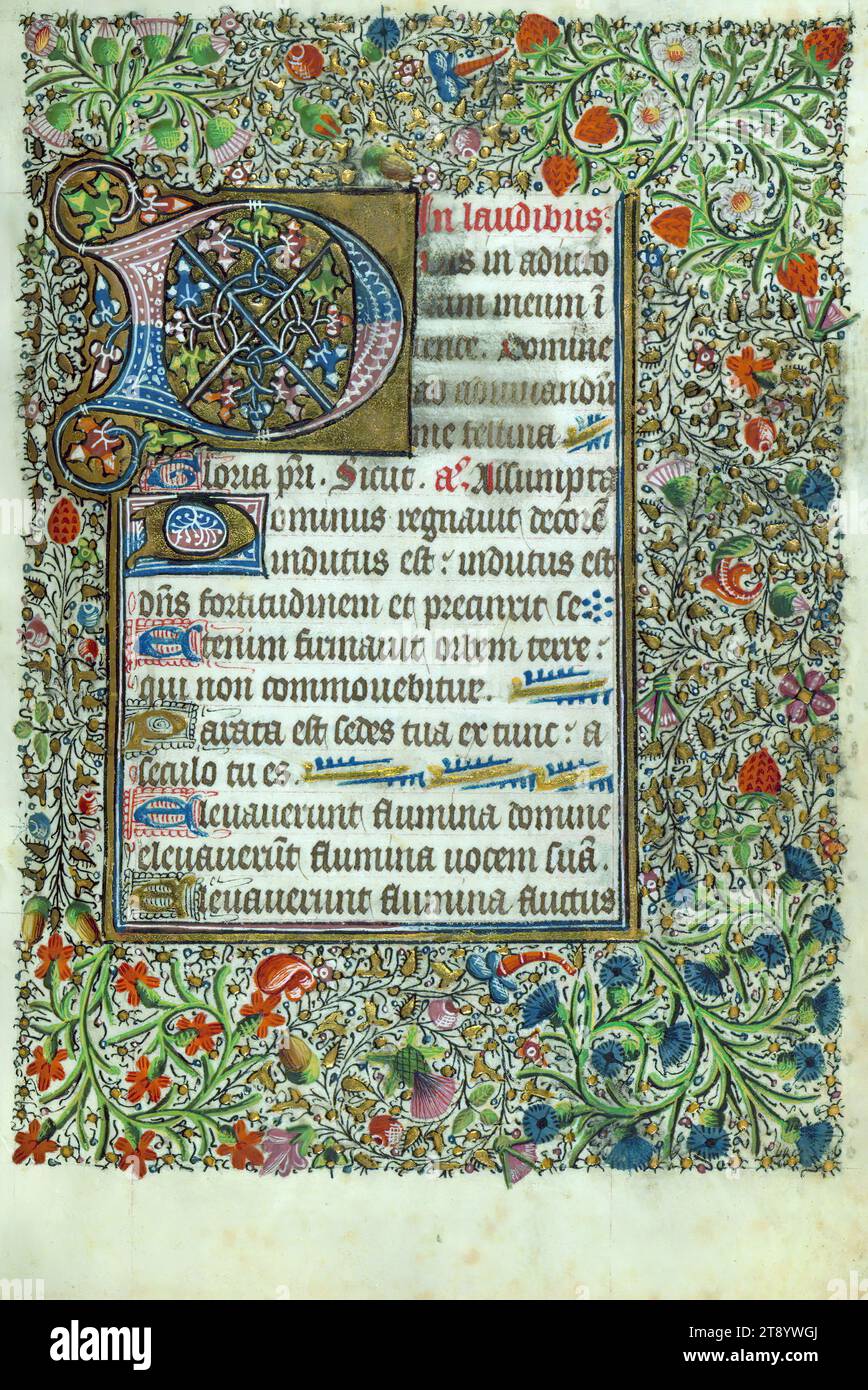 In laudibus:
D in adiuto
meum ī
Domine
ad adiuuandū
me festina
Gloria pr̄i. Sicut. a. Assumpta
Dominus regnauit decorē
indutus est : indutus est
dn̄s fortitudinem et precinxit se
Etenim firmauit orbem terre :
qui non commouebitur.
Parata est sedes tua ex tunc : a
seculo tu es.
Eleuauerunt flumina domine
eleuauerūt flumina uocem suā
Eleuauerunt flumina fluctus
alamy
Image ID: 2T8YWGJ
www.alamy.com